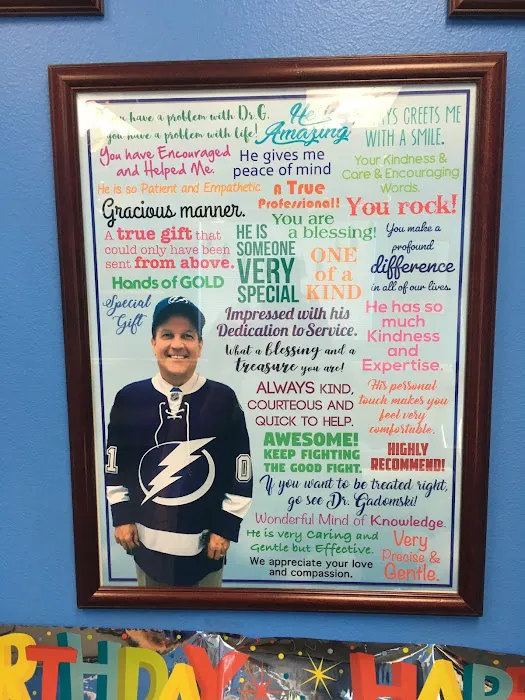 have a problem with Dr. G.
you have a problem with life!
Amazing
GREETS ME
WITH A SMILE.
You have Encouraged
and Helped Me.
He gives me
peace of mind
Your Kindness &
Care & Encouraging
Words.
He is so Patient and Empathetic
a True
Professional!
Gracious manner.
You are
a blessing!
You rock!
A true gift that
could only have been
sent from above.
HE IS
SOMEONE
VERY
SPECIAL
ONE
of a
KIND
You make a
profound
difference
in all of our lives.
Hands of GOLD
Special
Gift
Impressed with his
Dedication to Service.
He has so
much
Kindness
and
Expertise.
What a blessing and a
treasure you are!
ALWAYS KIND,
COURTEOUS AND
QUICK TO HELP.
His personal
touch makes you
feel very
comfortable.
AWESOME!
KEEP FIGHTING
THE GOOD FIGHT.
HIGHLY
RECOMMEND!
If you want to be treated right,
go see Dr. Gadomski!
Wonderful Mind of Knowledge.
He is very Caring and
Gentle but Effective.
Very
Precise &
Gentle.
We appreciate your love
and compassion.
1
0
RTHDAY
HAP